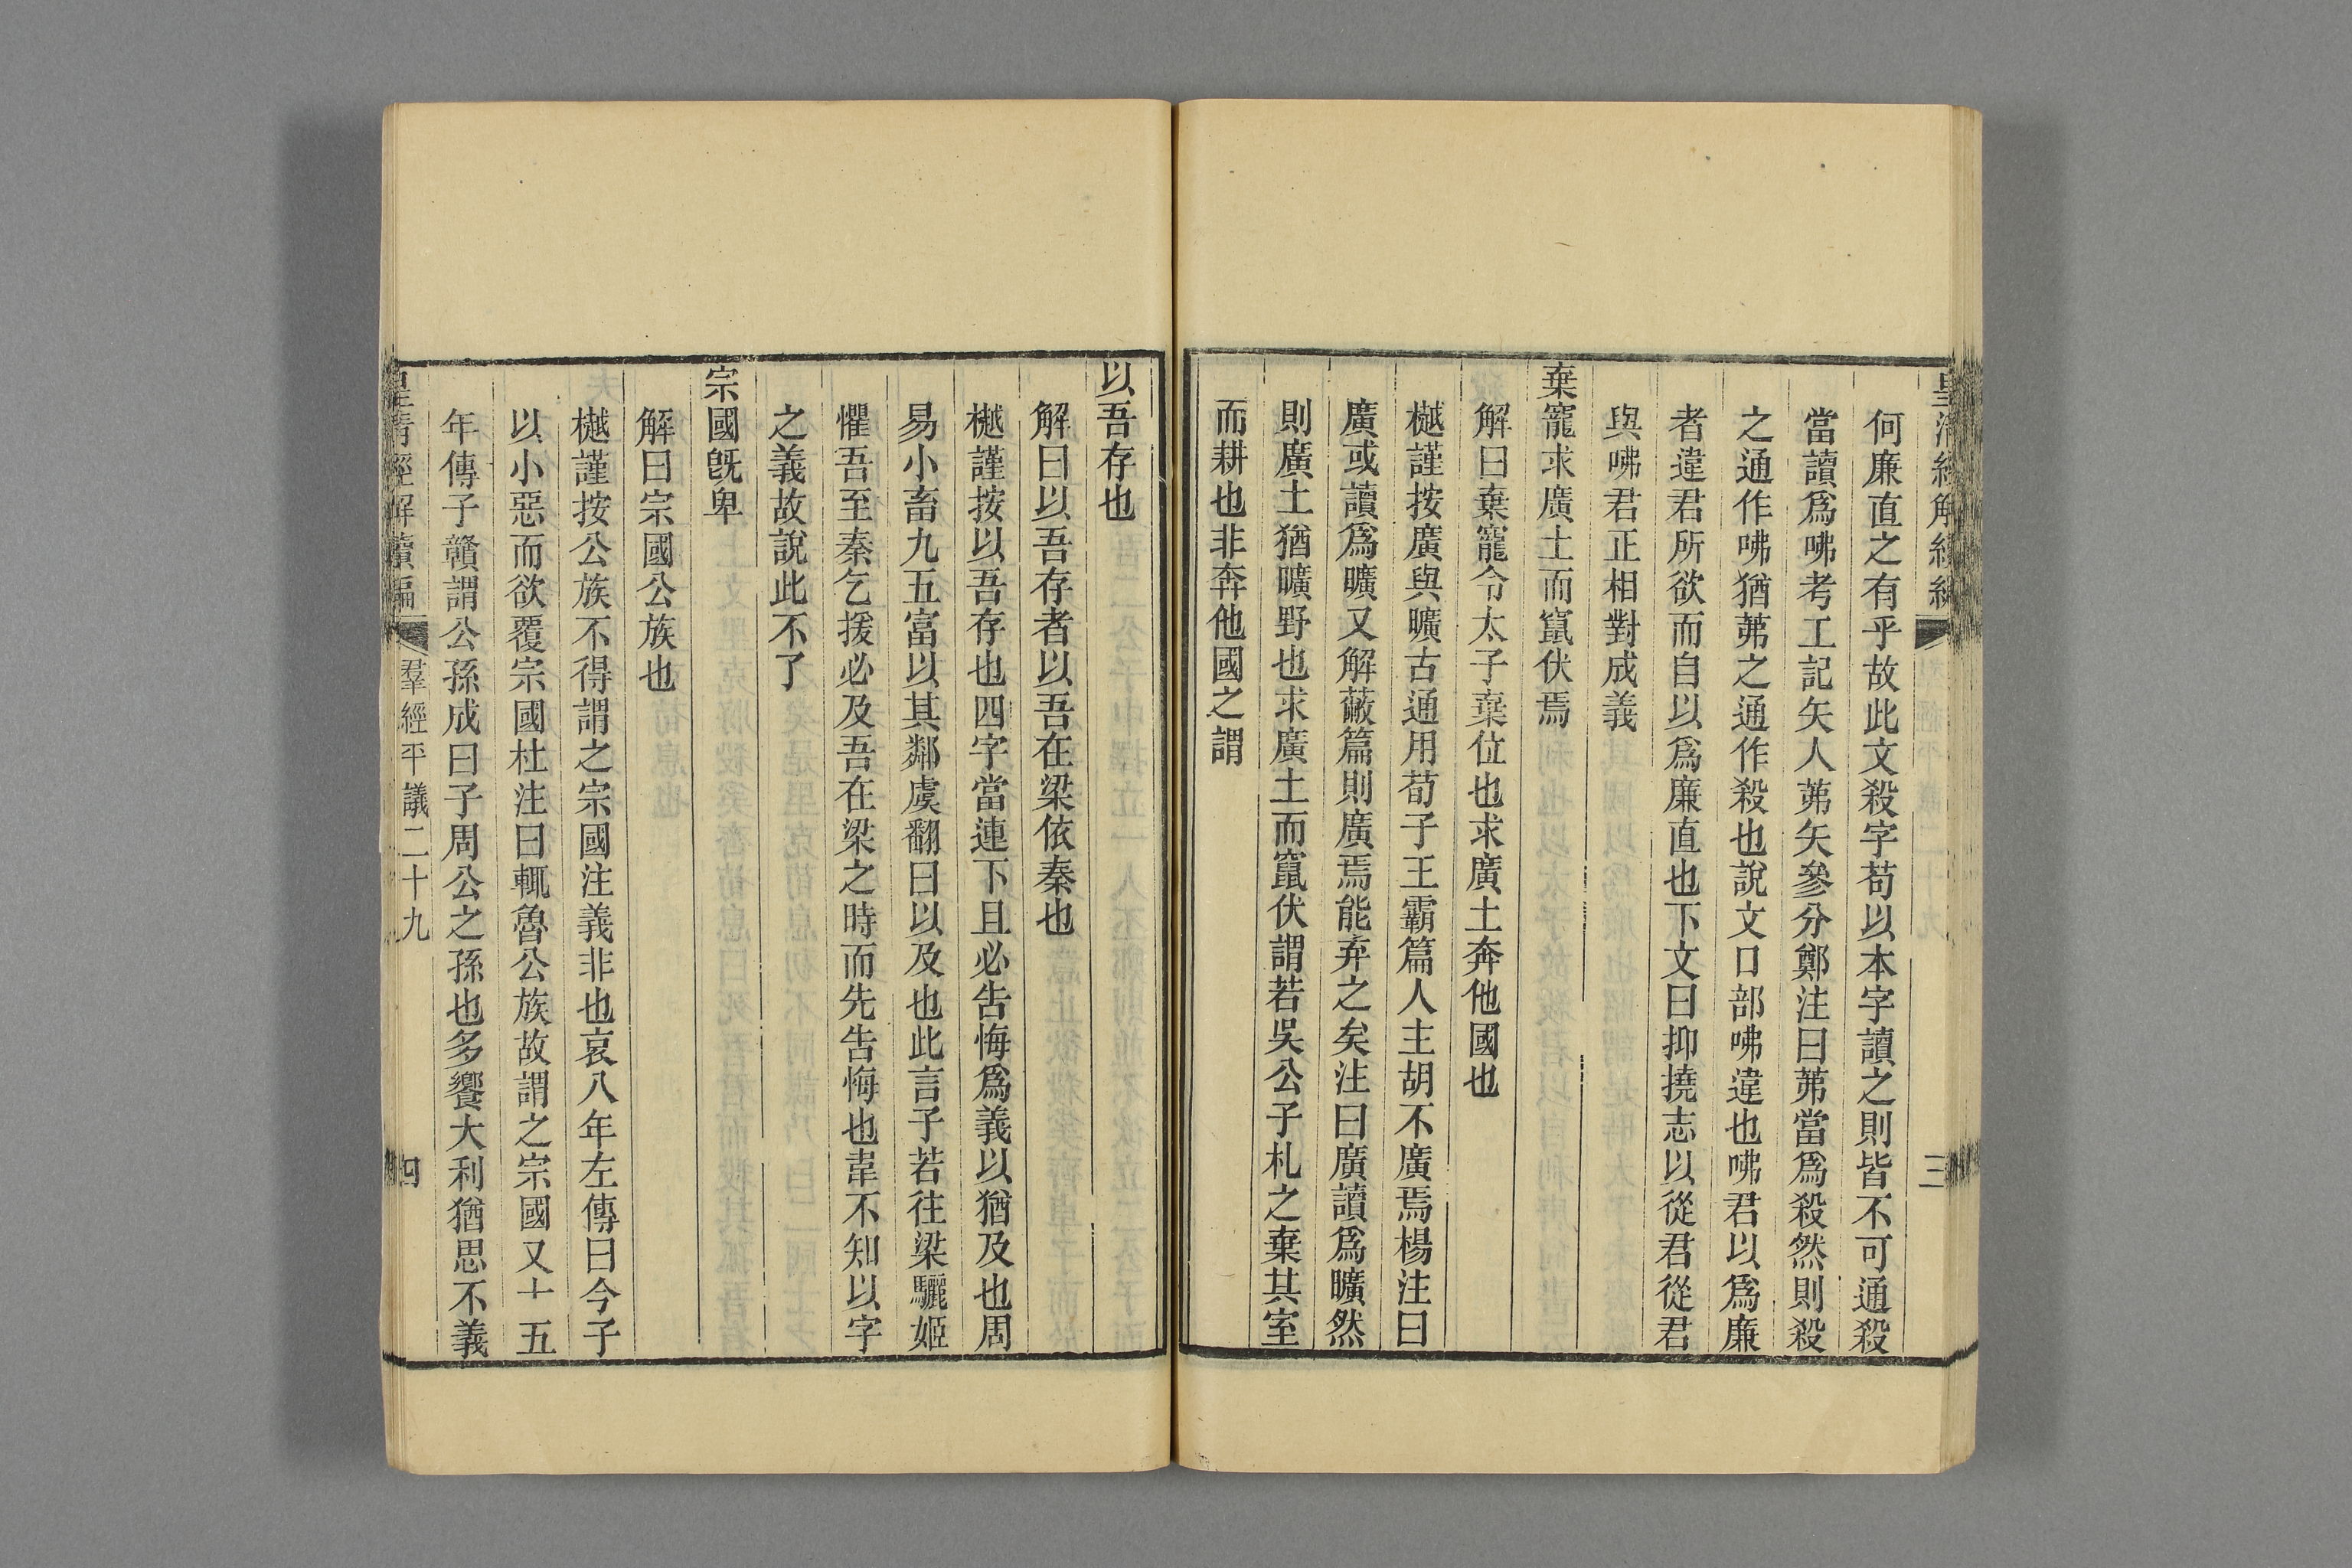 何廉直之有乎故此文殺字苟以本字讀之則皆不可通殺
當讀爲咈考工記矢人茀矢參分鄭注曰茀當爲殺然則殺
之通作咈猶茀之通作殺也說文口部咈違也咈君以爲廉
者違君所欲而自以爲廉直也下文曰抑撓志以從君從君
與咈君正相對成義
棄寵求廣土而竄伏焉
解曰棄寵令太子棄位也求廣土奔他國也
樾謹按廣與曠古通用荀子王霸篇人主胡不廣焉楊注曰
廣或讀爲曠又解蔽篇則廣焉能弃之矣注曰廣讀爲曠然
則廣土猶曠野也求廣土而竄伏謂若吳公子札之棄其室
而耕也非奔他國之謂
三
以吾存也
解曰以吾存者以吾在梁依秦也
樾謹按以吾存也四字當連下且必告悔爲義以猶及也周
易小畜九五富以其鄰虞翻曰以及也此言子若往梁驪姬
懼吾至秦乞援必及吾在梁之時而先告悔也韋不知以字
之義故說此不了
宗國旣卑
解曰宗國公族也
樾謹按公族不得謂之宗國注義非也哀八年左傳曰今子
以小惡而欲覆宗國杜注曰輒魯公族故謂之宗國又十五
年傳子贛謂公孫成曰子周公之孫也多饗大利猶思不義
皇清經解續編 羣經平議二十九 四